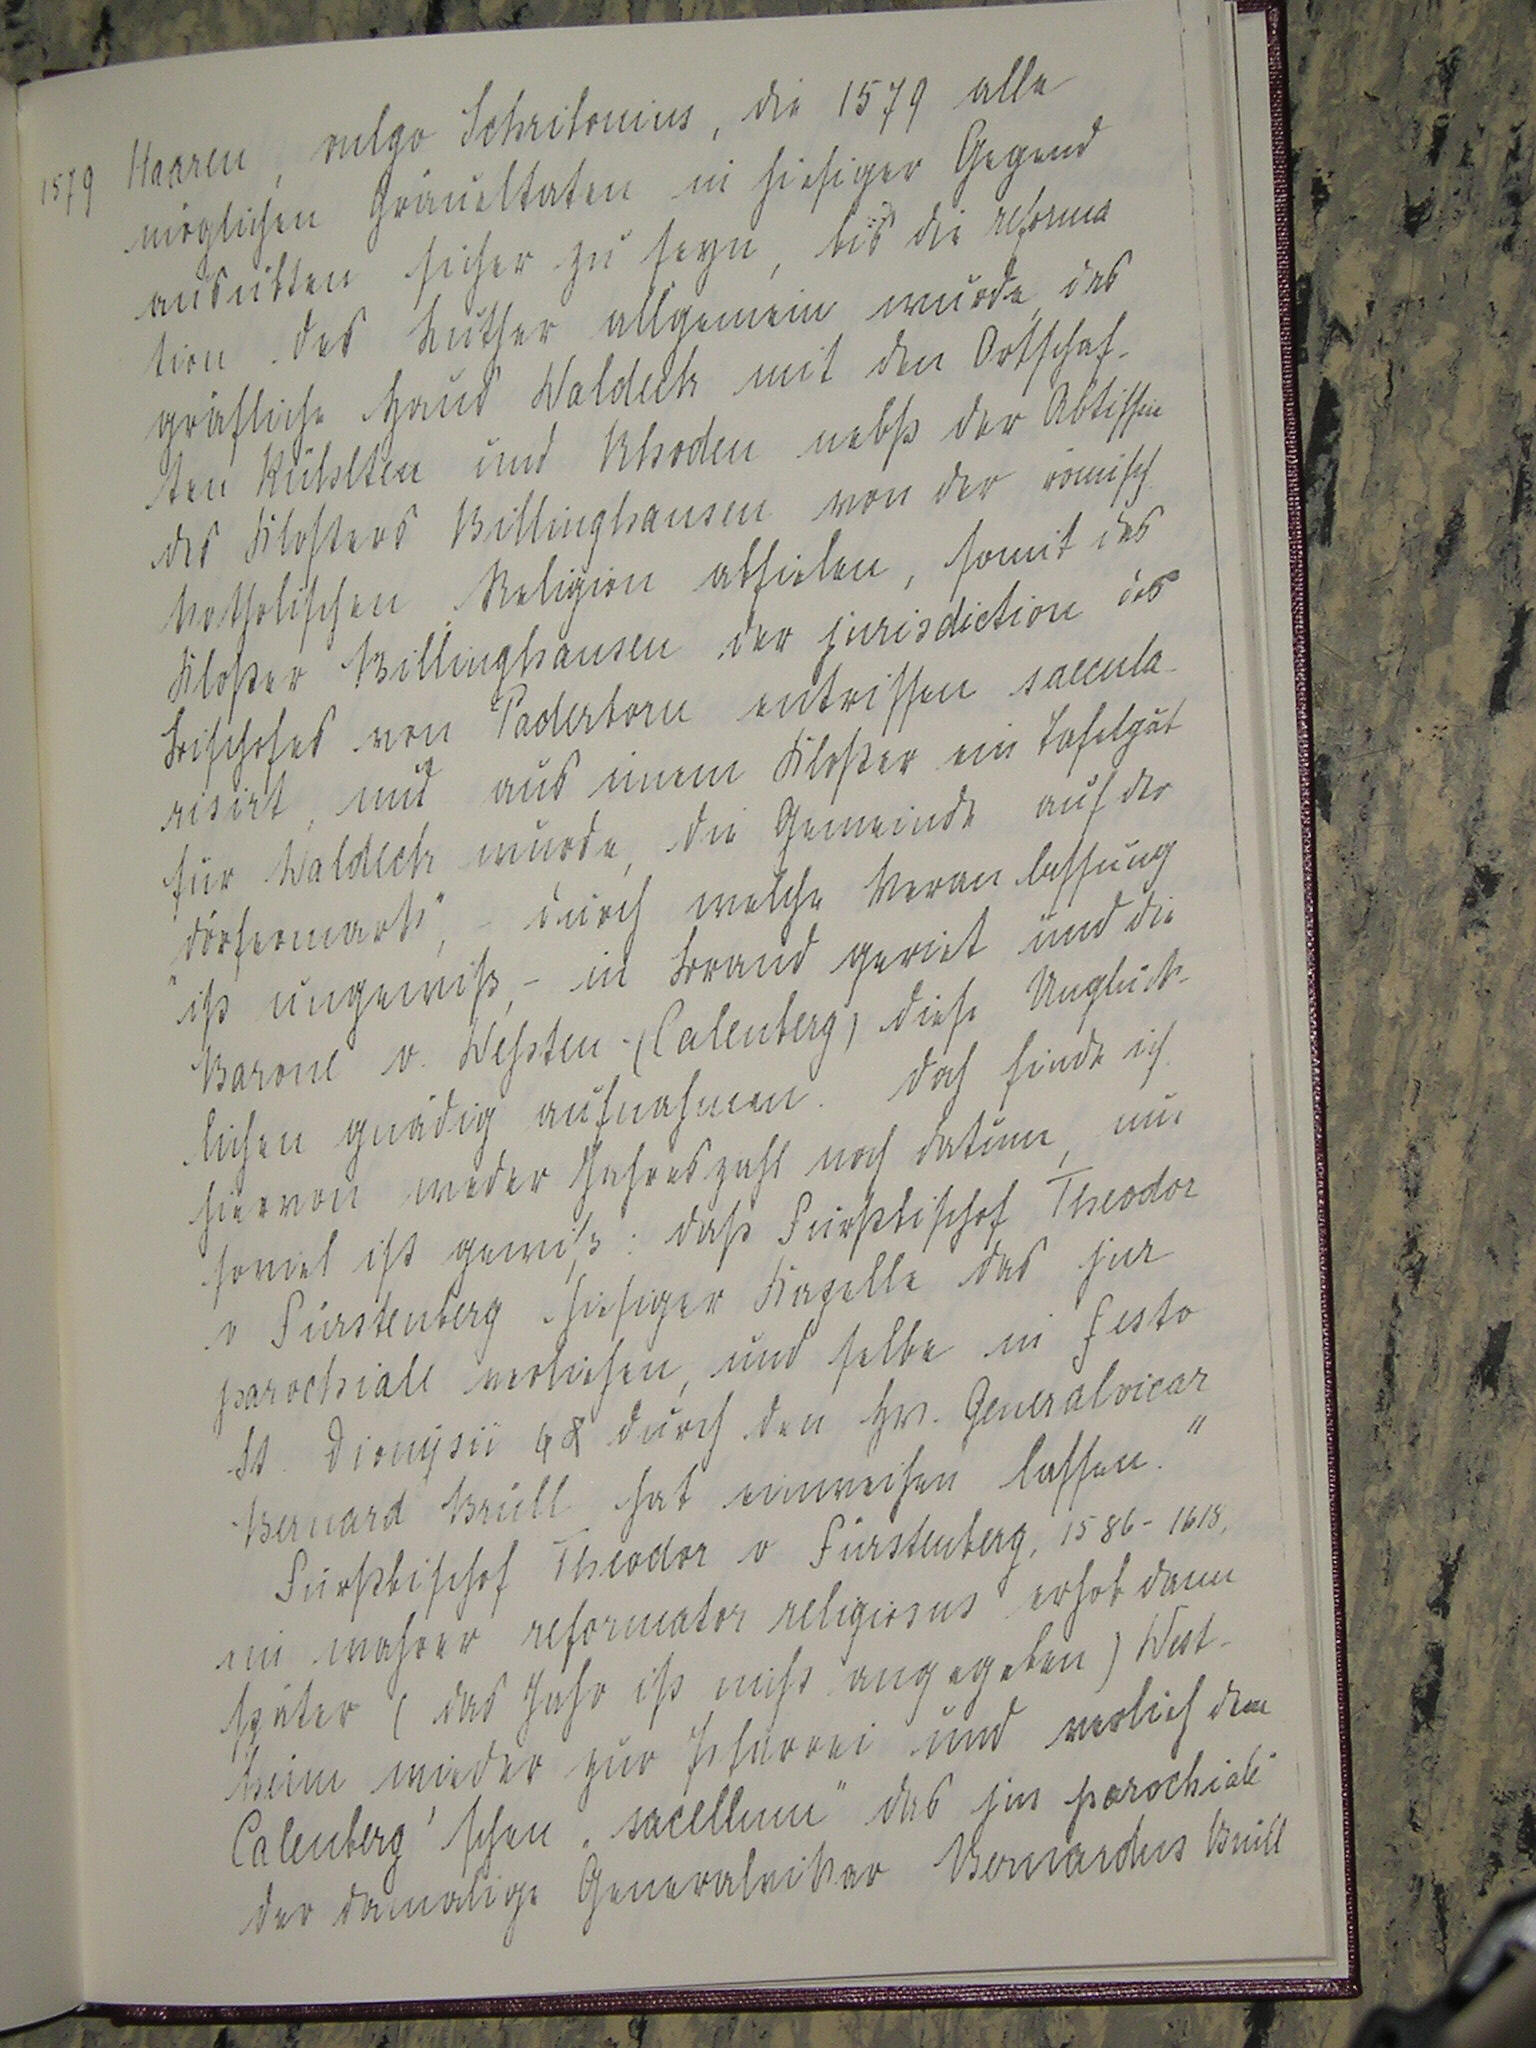 1579 Haaren, vulgo Schritonius, die 1579 alle
möglichen Gräueltaten in hiesiger Gegend
ausübten sicher zu seyn, bis die reforma
tion des Luther allgemein wurde, das
gräfliche Haus Waldeck mit den Ortschaf-
ten Külten und Rhoden nebst der Äbtissin
des Klosters Billinghausen von der römisch
katholischen Religion abfielen, somit das
Kloster Billinghausen der jurisdiction des
Bischofes von Paderborn entrissen saecula-
risirt, und aus einem Kloster ein Tafelgut
für Waldeck wurde, die Gemeinde auf der
"Dörfermark", - durch welche Veranlassung
ist ungewiß, - in Brand geriet und die
Barone v. Westen (Calenberg) diese Unglück-
lichen gnädig aufnahmen. Doch finde ich
hiervon weder Jahreszahl noch Datum, nur
soviel ist gewiß: daß Fürstbischof Theodor
v Fürstenberg hiesiger Kapelle das jur
parochiale verliehen, und selbe in festo
St. Dionÿsii durch den Hr. Generalvicar
Bernard Brüll hat einweihen lassen."
Fürstbischof Theodor v Fürstenberg, 1586-1618,
ein wahrer reformator religiosus erhob dann
später (das Jahr ist nicht angegeben) West-
heim wieder zur Pfarrei und verlieh dem
Calenberg'schen "sacellum" das jus parochiale
der damalige Generalvikar Bernardus Brüll